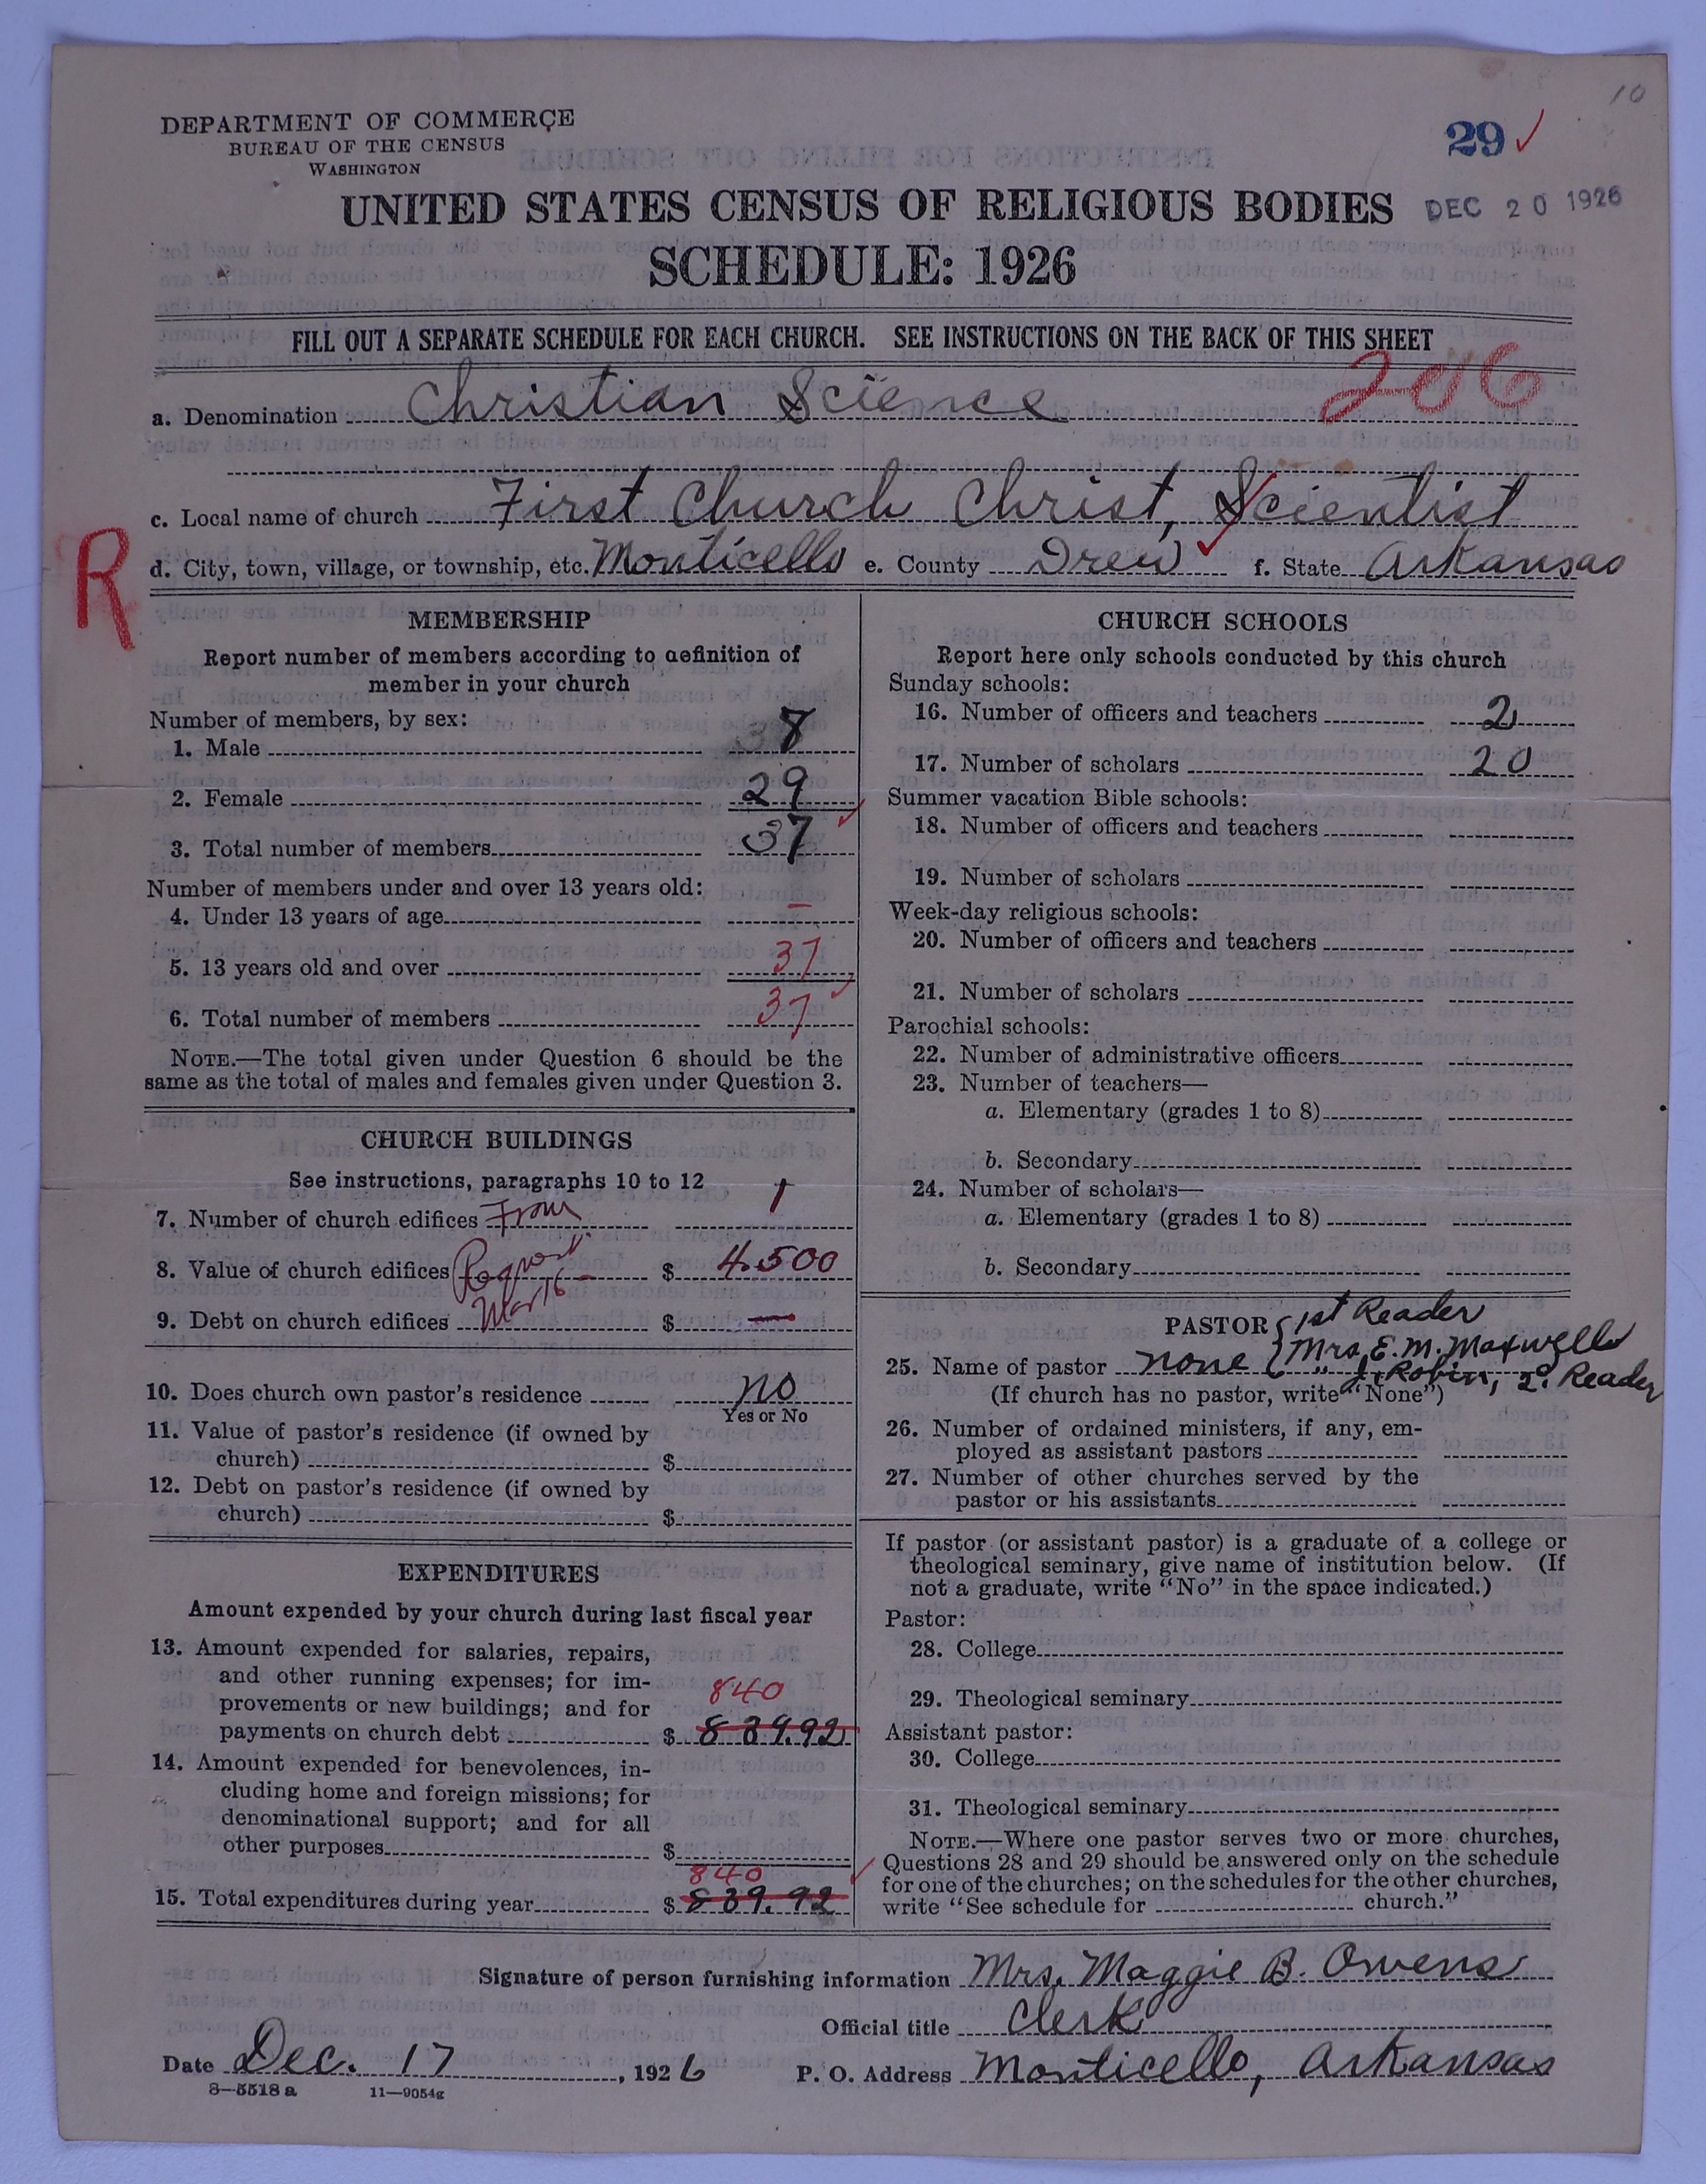 10
DEPARTMENT OF COMMERCE
BUREAU OF THE CENSUS
WASHINGTON
29
UNITED STATES CENSUS OF RELIGIOUS BODIES
DEC 20 1926
SCHEDULE: 1926
FILL OUT A SEPARATE SCHEDULE FOR EACH CHURCH. SEE INSTRUCTIONS ON THE BACK OF THIS SHEET
206
a. Denomination Christian Science
c. Local name of church First Church Christ, Scientist
R
d. City, town, village, or township, etc. Monticello e. County Drew f. State Arkansas
MEMBERSHIP
Report number of members according to definition of
member in your church
Number of members, by sex:
1. Male 8
2. Female 29
3. Total number of members 37
Number of members under and over 13 years old:
4. Under 13 years of age –
5. 13 years old and over 37
6. Total number of members 37
NOTE.—The total given under Question 6 should be the
same as the total of males and females given under Question 3.
CHURCH BUILDINGS
See instructions, paragraphs 10 to 12
7. Number of church edifices From 1
8. Value of church edifices $ 4500
9. Debt on church edifices Mar 16 $ —
10. Does church own pastor's residence no
Yes or No
11. Value of pastor's residence (if owned by
church) $
12. Debt on pastor's residence (if owned by
church) $
EXPENDITURES
Amount expended by your church during last fiscal year
13. Amount expended for salaries, repairs,
and other running expenses; for im-
provements or new buildings; and for
840
payments on church debt $ 839.92
14. Amount expended for benevolences, in-
cluding home and foreign missions; for
denominational support; and for all
other purposes $
840
15. Total expenditures during year $ 839.92
CHURCH SCHOOLS
Report here only schools conducted by this church
Sunday schools:
16. Number of officers and teachers 2
17. Number of scholars 20
Summer vacation Bible schools:
18. Number of officers and teachers
19. Number of scholars
Week-day religious schools:
20. Number of officers and teachers
21. Number of scholars
Parochial schools:
22. Number of administrative officers
23. Number of teachers—
a. Elementary (grades 1 to 8)
b. Secondary
24. Number of scholars—
a. Elementary (grades 1 to 8)
b. Secondary
PASTOR 1st Reader
25. Name of pastor none Mrs. E. M. Maxwell
" 2d Reader
(If church has no pastor, write "None")
26. Number of ordained ministers, if any, em-
ployed as assistant pastors
27. Number of other churches served by the
pastor or his assistants
If pastor (or assistant pastor) is a graduate of a college or
theological seminary, give name of institution below. (If
not a graduate, write "No" in the space indicated.)
Pastor:
28. College
29. Theological seminary
Assistant pastor:
30. College
31. Theological seminary
NOTE.—Where one pastor serves two or more churches,
Questions 28 and 29 should be answered only on the schedule
for one of the churches; on the schedules for the other churches,
write "See schedule for church."
Signature of person furnishing information Mrs. Maggie B. Owens
Official title Clerk
Date Dec. 17, 1926 P. O. Address Monticello, Arkansas
8—5518 a 11—9054g